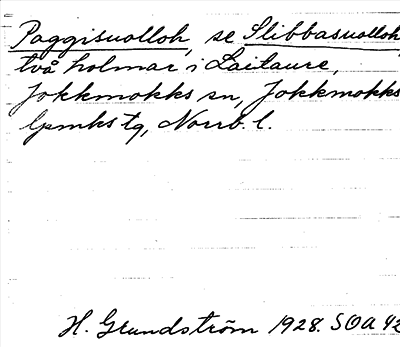 Paggisuolloh, se Slibbasuolloh
två holmar i Laitaure,
Jokkmokks sn, Jokkmokks
lpmks tg, Norrb. l.
H. Grundström 1928. SOA 42